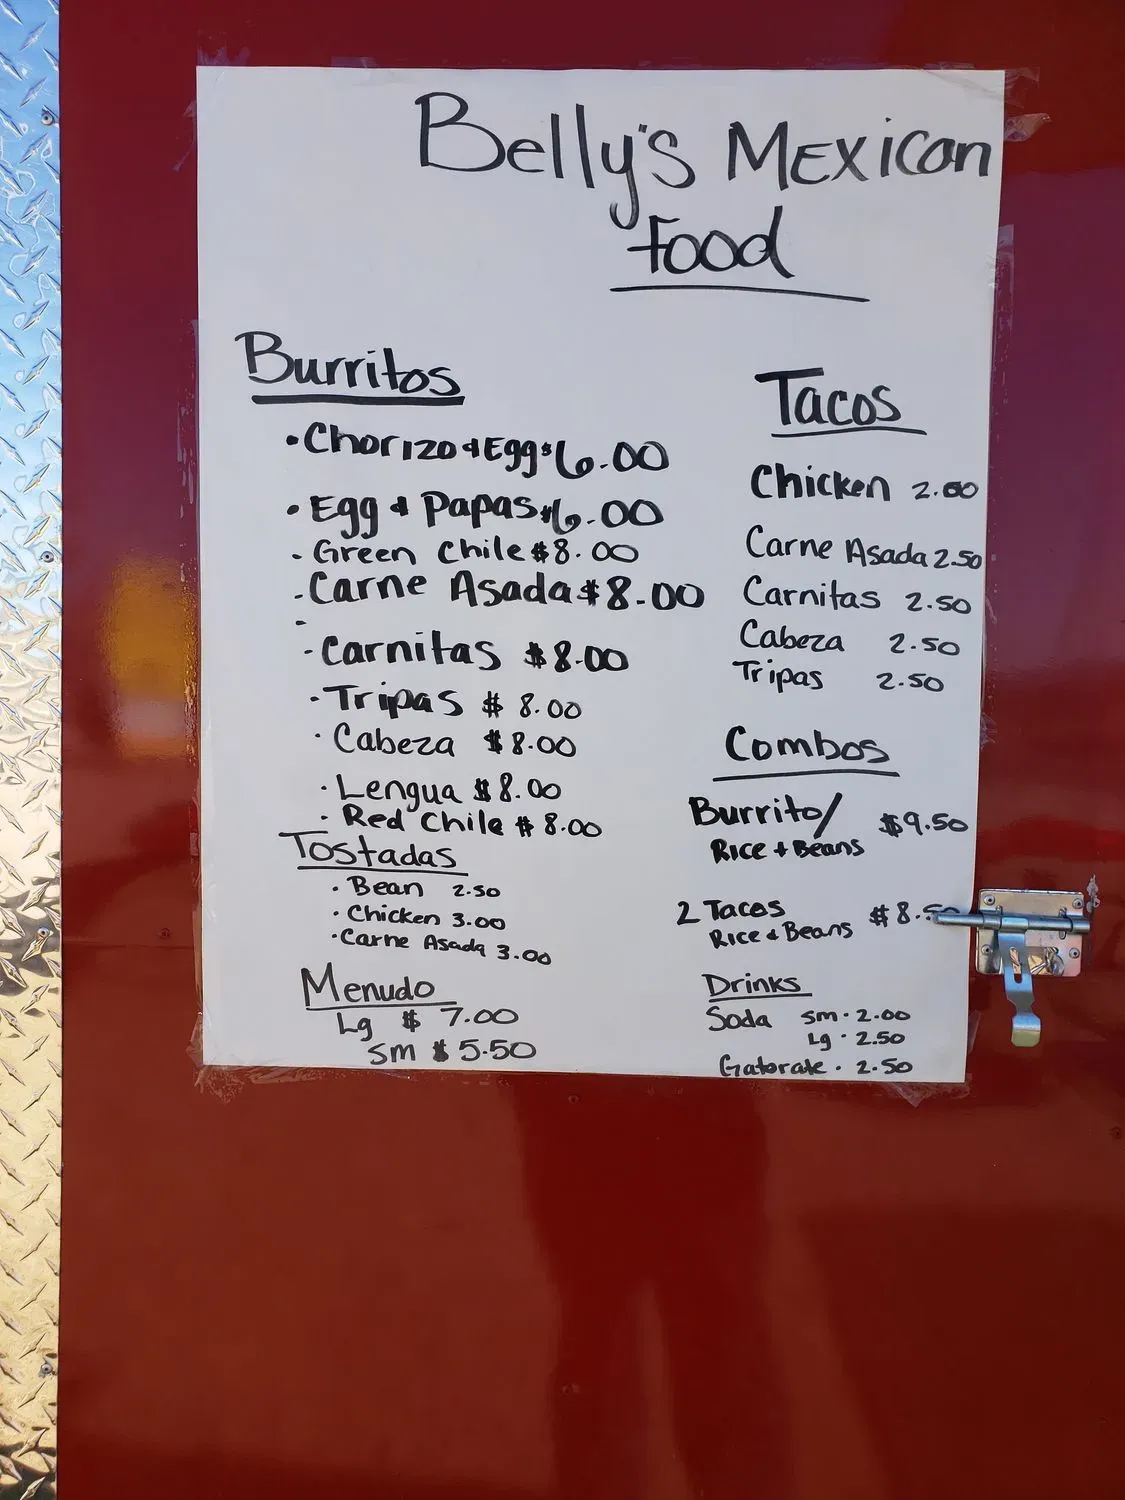 Belly's Mexican
Food
Burritos
• Chorizo & Egg $6.00
• Egg & Papas $6.00
• Green Chile $8.00
• Carne Asada $8.00
• Carnitas $8.00
• Tripas $8.00
• Cabeza $8.00
• Lengua $8.00
• Red Chile $8.00
Tostadas
• Bean 2.50
• Chicken 3.00
• Carne Asada 3.00
Menudo
Lg $7.00
Sm $5.50
Tacos
Chicken 2.00
Carne Asada 2.50
Carnitas 2.50
Cabeza 2.50
Tripas 2.50
Combos
Burrito/ $9.50
Rice + Beans
2 Tacos $8.50
Rice & Beans
Drinks
Soda Sm · 2.00
Lg · 2.50
Gatorate · 2.50